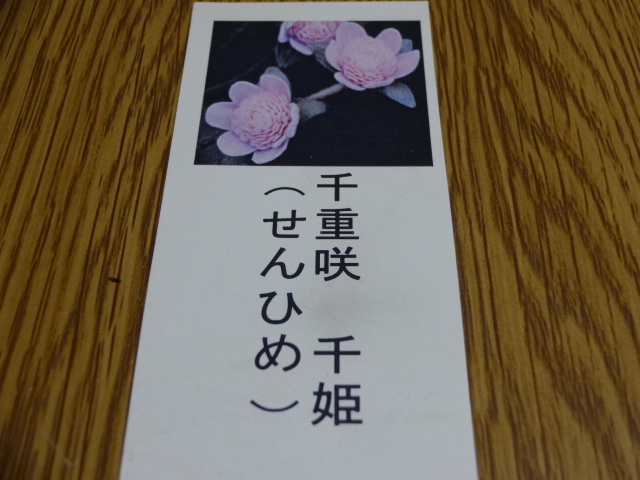 千重咲　千姫
（せんひめ）